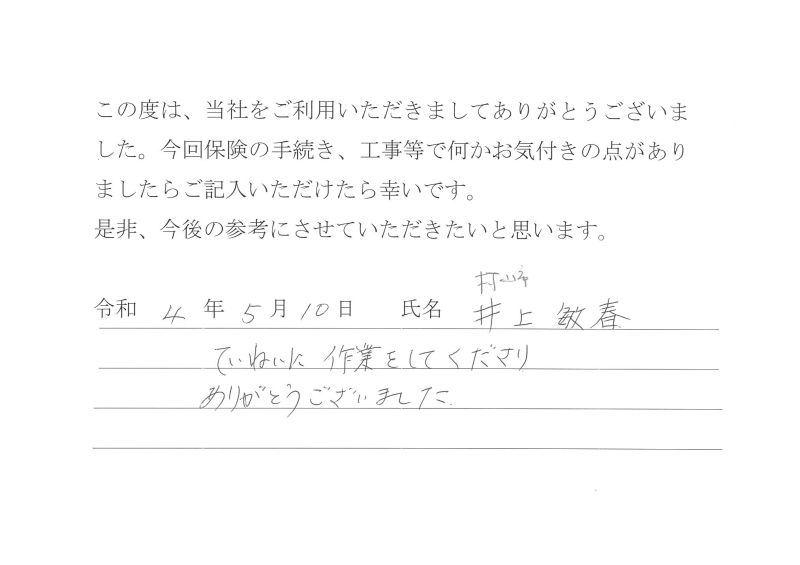 この度は、当社をご利用いただきましてありがとうございま
した。今回保険の手続き、工事等で何かお気付きの点があり
ましたらご記入いただけたら幸いです。
是非、今後の参考にさせていただきたいと思います。
村山市
令和 4 年 5 月 10 日 氏名 井上 敏春
ていねいに 作業をしてくださり
ありがとうございました.